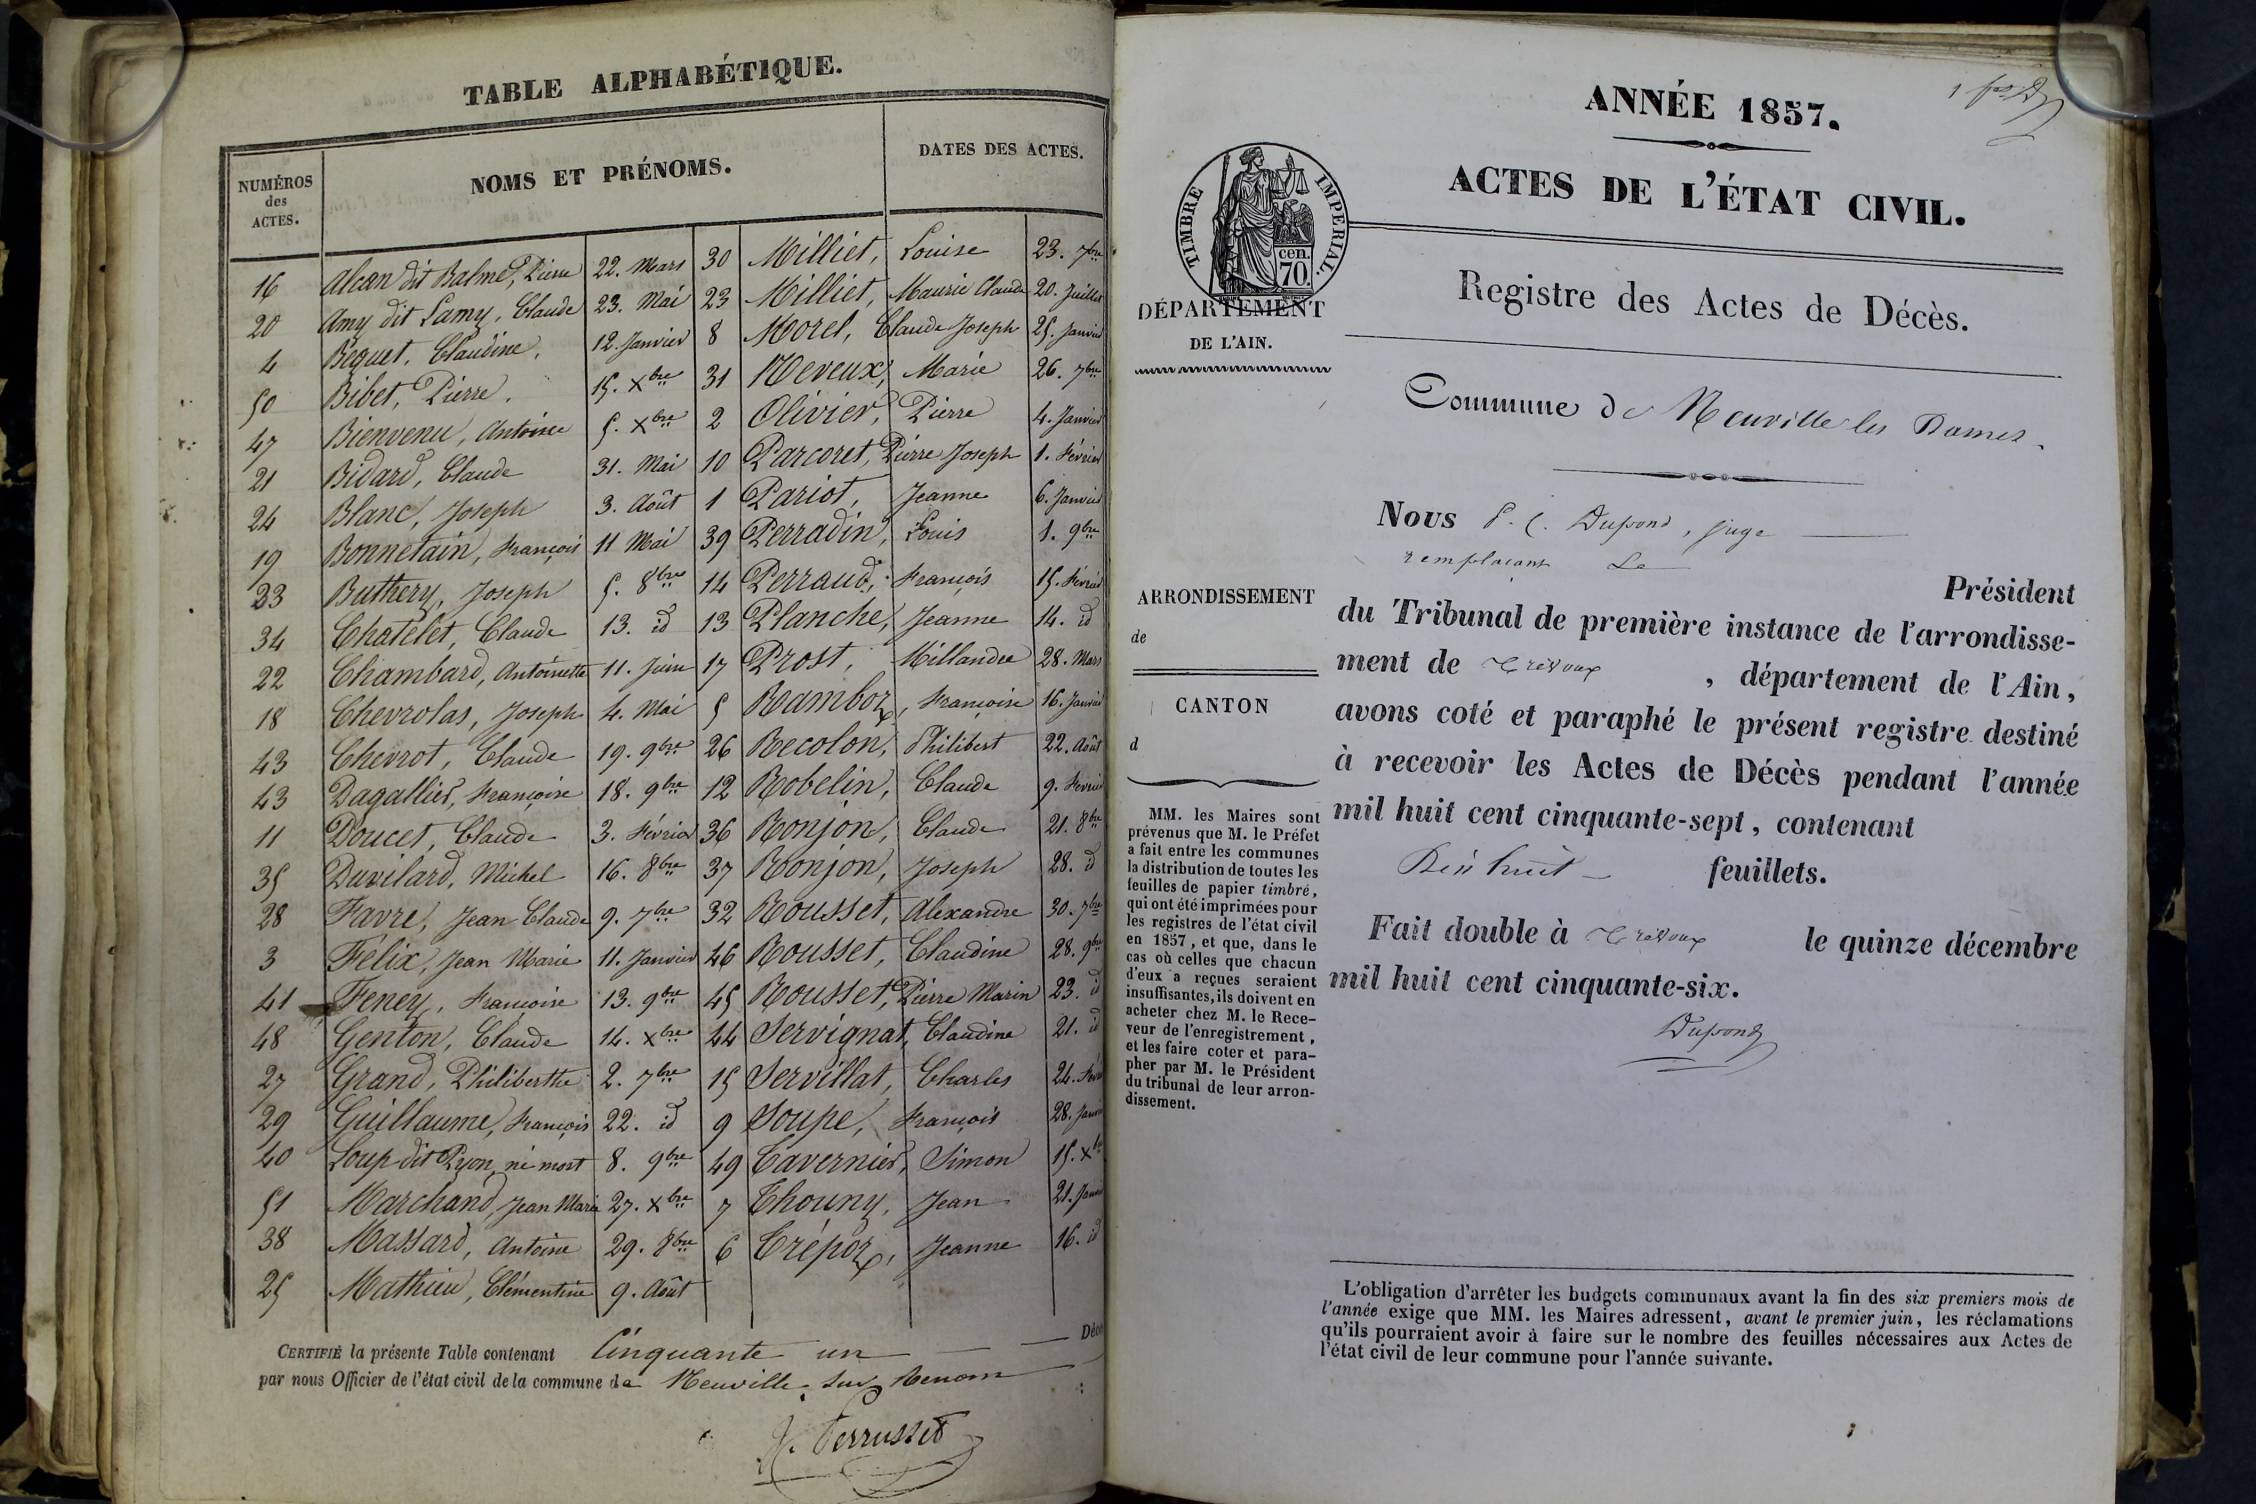 TABLE ALPHABÉTIQUE.
NUMÉROS des ACTES. NOMS ET PRÉNOMS. DATES DES ACTES.
16 Alcan dit Balme, Pierre 22. Mars
20 Amy dit Lamy, Claude 23. Mai
4 Bequet, Claudine, 12. Janvier
50 Bibet, Pierre. 15. Xbre
47 Bienvenu, Antoine 5. Xbre
21 Bidard, Claude 31. Mai
24 Blanc, Joseph 3. Août
19 Bonnetain, François 11 Mai
33 Buthery, Joseph 5. 8bre
34 Chatelet, Claude 13. id
22 Chambard, Antoinette 11. Juin
18 Chevrolas, Joseph 4. Mai
43 Chevrot, Claude 19. 9bre
43 Dagallier, Françoise 18. 9bre
11 Doucet, Claude 3. Février
35 Duvilard, Michel 16. 8bre
28 Favre, Jean Claude 9. 7bre
3 Félix, Jean Marie 11. Janvier
41 Feney, Françoise 13. 9bre
48 Genton, Claude 14. Xbre
27 Grand, Philiberthe 2. 7bre
29 Guillaume, François 22. id
40 Loup dit Pyon, né mort 8. 9bre
51 Marchand, Jean Marie 27. Xbre
38 Massard, Antoine 29. 8bre
25 Mathieu, Clémentine 9. Août
30 Milliet, Louise 23. 7bre
23 Milliet, Maurie Claude 20. Juillet
8 Morel, Claude Joseph 25. Janvier
31 Neveux, Marie 26. 7bre
2 Olivier, Pierre 4. Janvier
10 Parcoret, Pierre Joseph 1. Février
1 Pariot, Jeanne 6. Janvier
39 Perradin, Louis 1. 9bre
14 Perraud, François 15. Février
13 Planche, Jeanne 14. id
17 Prost, Millandre 28. Mars
5 Ramboz, Françoise 16. Janvier
26 Recolon, Philibert 22. Août
12 Robelin, Claude 9. Février
36 Ronjon, Claude 21. 8bre
37 Ronjon, Joseph 28. id
32 Rousset, Alexandre 30. 7bre
46 Rousset, Claudine 28. 9bre
45 Rousset, Pierre Marin 23. id
44 Servignat, Claudine 21. id
15 Servillat, Charles 24. Févr
9 Soupe, François 28. Janvi
49 Tavernier, Simon 15. Xb
7 Thouny, Jean 21. Janv
6 Trépoz, Jeanne 16. id
CERTIFIÉ la présente Table contenant Cinquante un Déc
par nous Officier de l'état civil de la commune de Neuville sur Renom
J. Perrusset
ANNÉE 1857.
ACTES DE L'ÉTAT CIVIL.
TIMBRE IMPERIAL.
cen.
70.
DÉPARTEMENT
DE L'AIN.
Registre des Actes de Décès.
Commune de Neuville les Dames.
Nous P. C. Dupond, juge
remplaçant Le
Président
du Tribunal de première instance de l'arrondisse-
ment de Trévoux, département de l'Ain,
avons coté et paraphé le présent registre destiné
à recevoir les Actes de Décès pendant l'année
mil huit cent cinquante-sept, contenant
Dix huit feuillets.
Fait double à Trévoux le quinze décembre
mil huit cent cinquante-six.
Dupond
ARRONDISSEMENT
de
CANTON
d
MM. les Maires sont
prévenus que M. le Préfet
a fait entre les communes
la distribution de toutes les
feuilles de papier timbré,
qui ont été imprimées pour
les registres de l'état civil
en 1857, et que, dans le
cas où celles que chacun
d'eux a reçues seraient
insuffisantes, ils doivent en
acheter chez M. le Rece-
veur de l'enregistrement,
et les faire coter et para-
pher par M. le Président
du tribunal de leur arron-
dissement.
L'obligation d'arrêter les budgets communaux avant la fin des six premiers mois de
l'année exige que MM. les Maires adressent, avant le premier juin, les réclamations
qu'ils pourraient avoir à faire sur le nombre des feuilles nécessaires aux Actes de
l'état civil de leur commune pour l'année suivante.